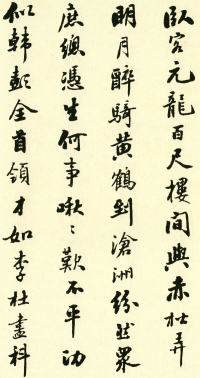 臥客元龍百尺樓間與赤松弄
明月醉騎黃鶴到滄洲紛然眾
庶總憑生何事啾〻歎不平功
似韓彭全首領才如李杜盡科